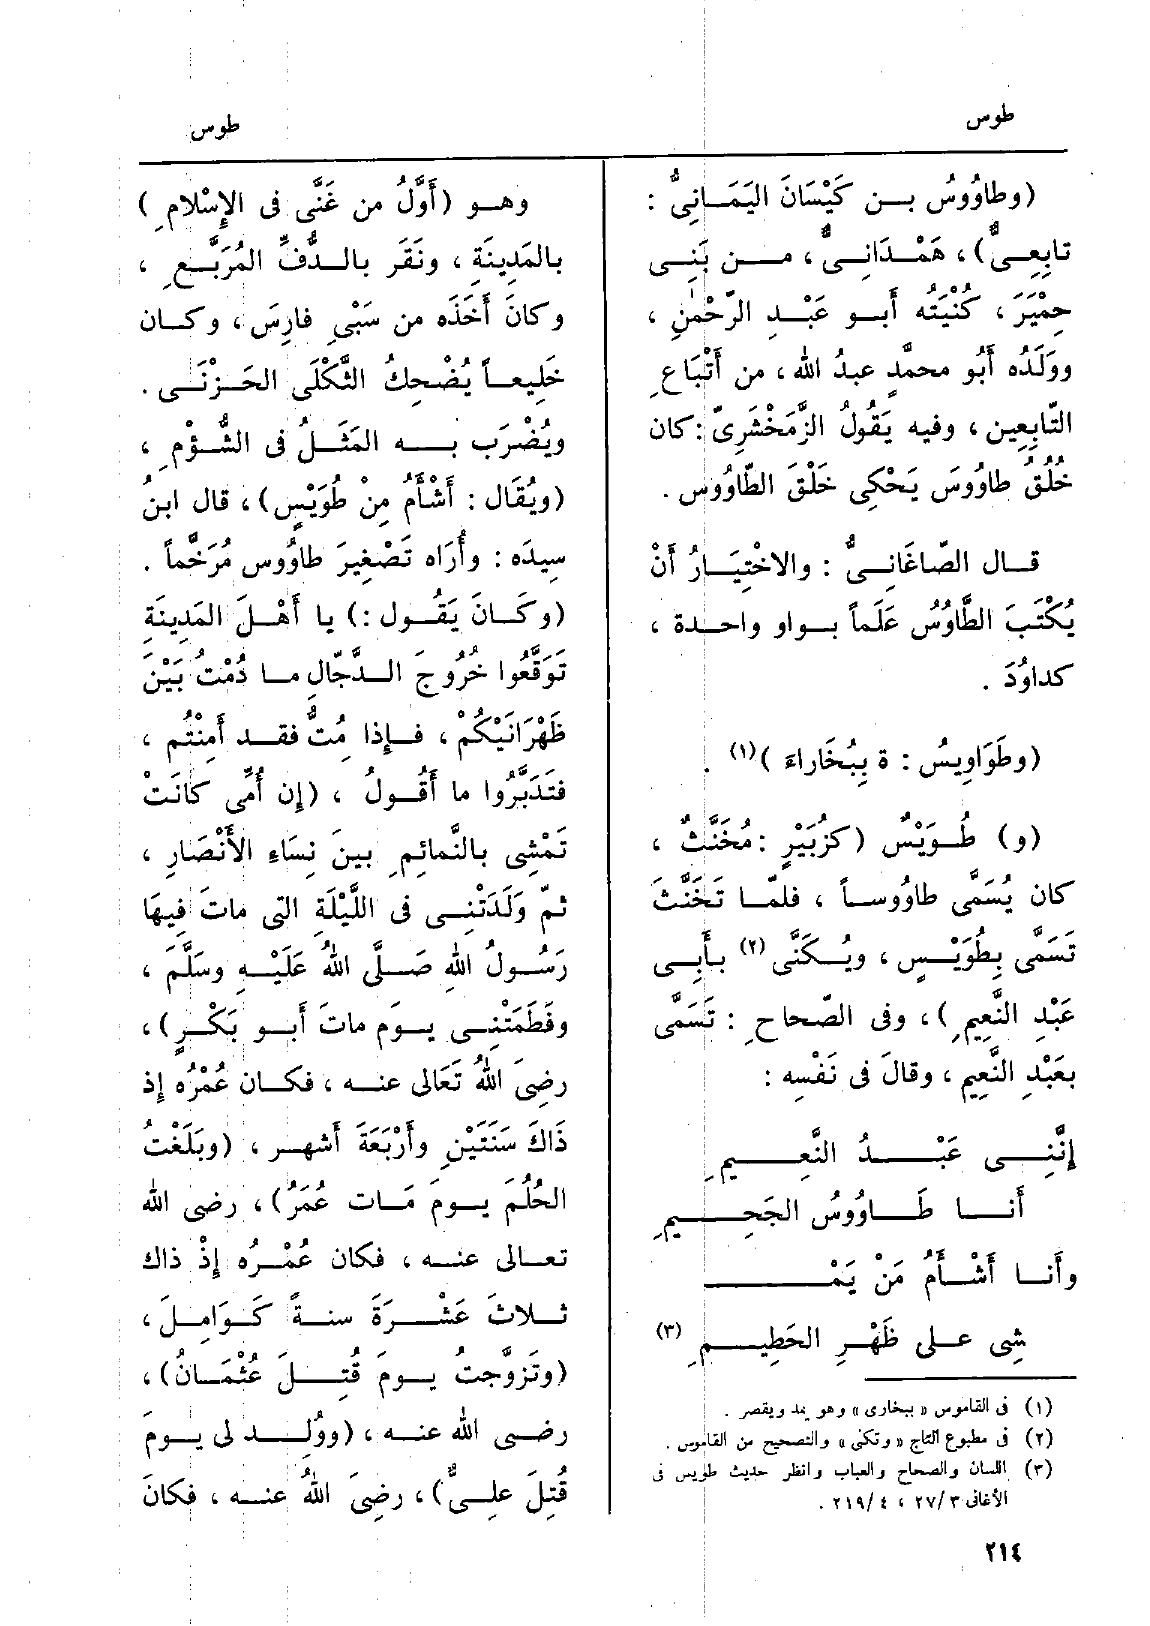 طوس
طوس
(وطاوُوسُ بن كَيْسَانَ اليَمَانِىُّ :
تابِعِىٌّ) ، هَمْدَانِىٌّ ، من بَنِى
حِمْيَرَ ، كُنْيَتُه أبو عَبْدِ الرَّحْمٰنِ ،
ووَلَدُه أَبُو محمَّدٍ عبدُ الله ، من أَتْبَاعِ
التّابِعِين ، وفيه يَقُولُ الزَّمَخْشَرِىّ : كان
خُلُقُ طاوُوسَ يَحْكِى خَلْقَ الطّاوُوسِ .
قال الصّاغَانِىُّ : والاخْتِيَارُ أَنْ
يُكْتَبَ الطَّاوُسُ عَلَماً بواو واحدة ،
كداوُدَ .
(وطَوَاوِيسُ : ة بِبُخَاراءَ )(١) .
(و) طُوَيْسٌ (كزُبَيْرٍ : مُخَنَّثٌ ،
كان يُسَمَّى طاوُوساً ، فلمّا تَخَنَّثَ
تَسَمَّى بِطُوَيْسٍ ، ويُكَنَّى (٢) بأَبِى
عَبْدِ النَّعِيمِ ) ، وفى الصّحاحِ : تَسَمَّى
بعَبْدِ النَّعِيمِ ، وقالَ فى نَفْسِه :
إِنَّنِى عَبْدُ النَّعِيمِ
أَنا طَاوُوسُ الجَحِيمِ
وأَنا أَشْأَمُ مَنْ يَمْـ
شِى على ظَهْرِ الحَطِيمِ (٣)
(١) فى القاموس « ببخارى » وهو يمد ويقصر .
(٢) فى مطبوع التاج « وتكنى » والتصحيح من القاموس .
(٣) اللسان والصحاح والعباب وانظر حديث طويس فى
الأغانى ٢٧/٣ ، ٢١٩/٤ .
وهو (أَوَّلُ من غَنَّى فى الإِسْلامِ )
بالمَدِينَةِ ، ونَقَر بالدُّفِّ المُرَبَّعِ ،
وكانَ أَخَذَه من سَبْىِ فارِسَ ، وكان
خَلِيعاً يُضْحِكُ الثَّكْلَى الحَزْنَى .
ويُضْرَب به المَثَلُ فى الشُّؤْمِ ،
(ويُقَال : أَشْأَمُ مِنْ طُوَيْسٍ) ، قال ابنُ
سِيدَه : وأُرَاه تَصْغِيرَ طاوُوس مُرَخَّماً .
(وكَانَ يَقُول :) يا أَهْلَ المَدِينَةِ
تَوَقَّعُوا خُرُوجَ الدَّجّالِ ما دُمْتُ بَيْنَ
ظَهْرَانَيْكُمْ ، فإِذا مُتُّ فقد أَمِنْتُم ،
فتَدَبَّرُوا ما أَقُولُ ، (إِن أُمِّى كانَتْ
تَمْشِى بالنَّمائِمِ بينَ نِسَاءِ الأَنْصَارِ ،
ثمّ وَلَدَتْنِى فى اللَّيْلَةِ التى ماتَ فِيهَا
رَسُولُ اللهِ صَلَّى اللهُ عَلَيْهِ وسَلَّمَ ،
وفَطَمَتْنِى يومَ ماتَ أَبو بَكْرٍ) ،
رضِىَ اللهُ تَعَالى عنه ، فكان عُمْرُه إِذ
ذَاكَ سَنَتَيْنِ وأَرْبَعَةَ أَشهر ، (وبَلَغْتُ
الحُلُمَ يومَ مَات عُمَرُ) ، رضى الله
تعالى عنه ، فكان عُمْرُه إِذْ ذاك
ثلاثَ عَشْرَةَ سنةً كَوَامِلَ ،
(وتَزوَّجتُ يومَ قُتِلَ عُثْمَانُ) ،
رضى الله عنه ، (ووُلِد لى يومَ
قُتِلَ علِىٌّ) ، رضِىَ اللهُ عنه ، فكانَ
٢١٤